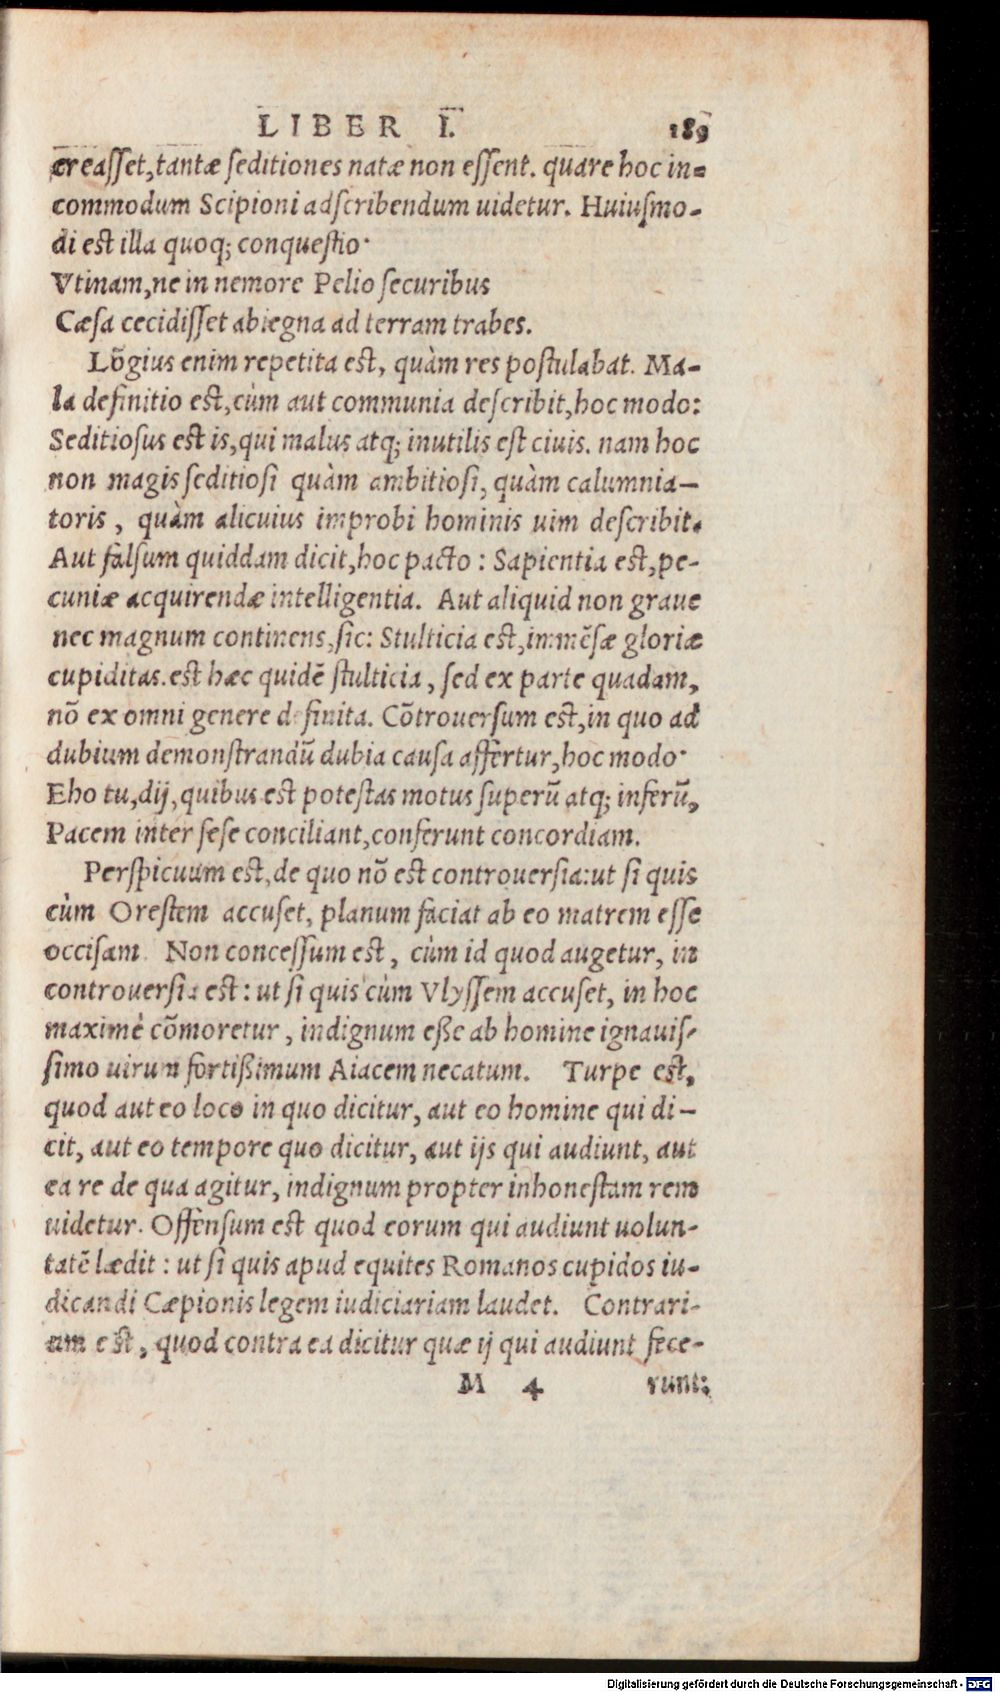 LIBER I. 189
creaſſet,tantæ ſeditiones natæ non eſſent. quare hoc in-
commodum Scipioni adſcribendum uidetur. Huiuſmo-
di est illa quoq; conqueſtio·
Vtinam,ne in nemore Pelio ſecuribus
Cæſa cecidiſſet abiegna ad terram trabes.
Lōgius enim repetita est, quàm res poſtulabat. Ma-
la definitio est,cùm aut communia deſcribit,hoc modo:
Seditioſus est is,qui malus atq; inutilis est ciuis. nam hoc
non magis ſeditioſi quàm ambitioſi, quàm calumnia-
toris, quàm alicuius improbi hominis uim deſcribit.
Aut falſum quiddam dicit,hoc pacto: Sapientia est,pe-
cuniæ acquirendæ intelligentia. Aut aliquid non graue
nec magnum continens,ſic: Stulticia est,immēſæ gloriæ
cupiditas.est hæc quidē ſtulticia, ſed ex parte quadam,
nō ex omni genere definita. Cōtrouerſum est,in quo ad
dubium demonſtrandū dubia cauſa affertur,hoc modo·
Eho tu,dij,quibus est poteſtas motus ſuperū atq; inferū,
Pacem inter ſeſe conciliant,conferunt concordiam.
Perſpicuum est,de quo nō est controuerſia:ut ſi quis
cùm Oreſtem accuſet, planum faciat ab eo matrem eſſe
occiſam. Non conceſſum est, cùm id quod augetur, in
controuerſia est: ut ſi quis cùm Vlyſſem accuſet, in hoc
maximè cōmoretur, indignum eße ab homine ignauiſ-
ſimo uirum fortißimum Aiacem necatum. Turpe est,
quod aut eo loco in quo dicitur, aut eo homine qui di-
cit, aut eo tempore quo dicitur, aut ijs qui audiunt, aut
ea re de qua agitur, indignum propter inhoneſtam rem
uidetur. Offenſum est quod eorum qui audiunt uolun-
tatē lædit: ut ſi quis apud equites Romanos cupidos iu-
dicandi Cæpionis legem iudiciariam laudet. Contrari-
um est, quod contra ea dicitur quæ ij qui audiunt fece-
M 4 runt:
Digitalisierung gefördert durch die Deutsche Forschungsgemeinschaft - DFG